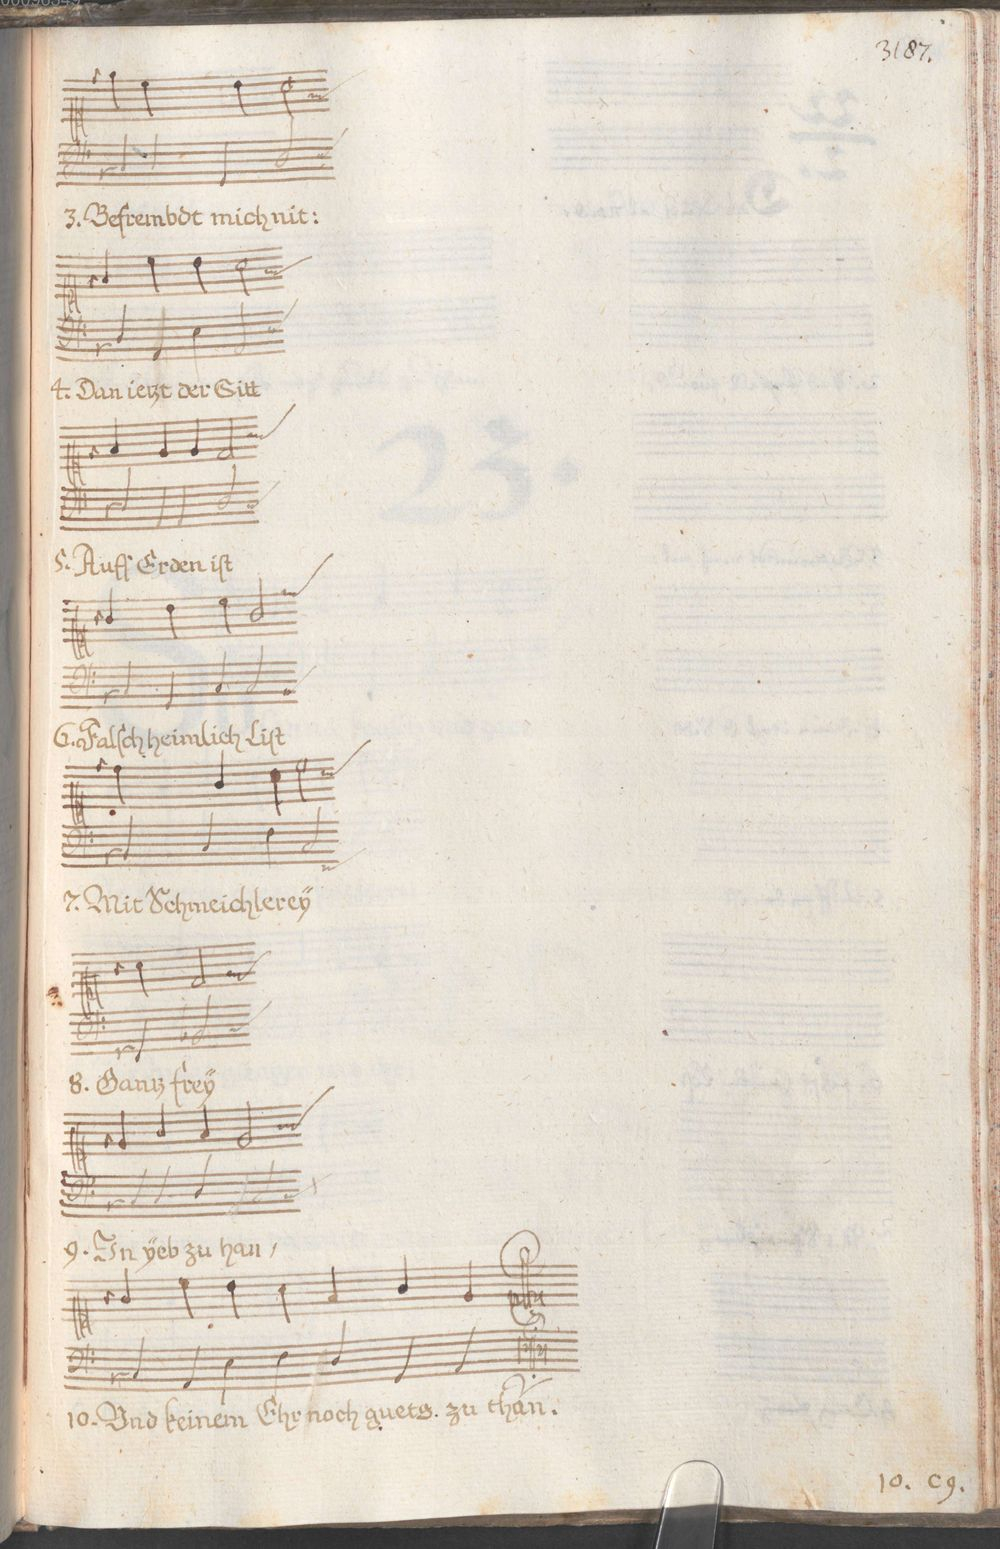 3187.
3. Befrembdt mich nit:
4. Dan ietzt der Sitt
5. Auff Erden ist
6. Falsch heimlich List
7. Mit Schmeichlerey
8. Gantz frey
9. In yeb zu han,
10. Vnd keinem Ehr noch guets. zu than.
10. C9.